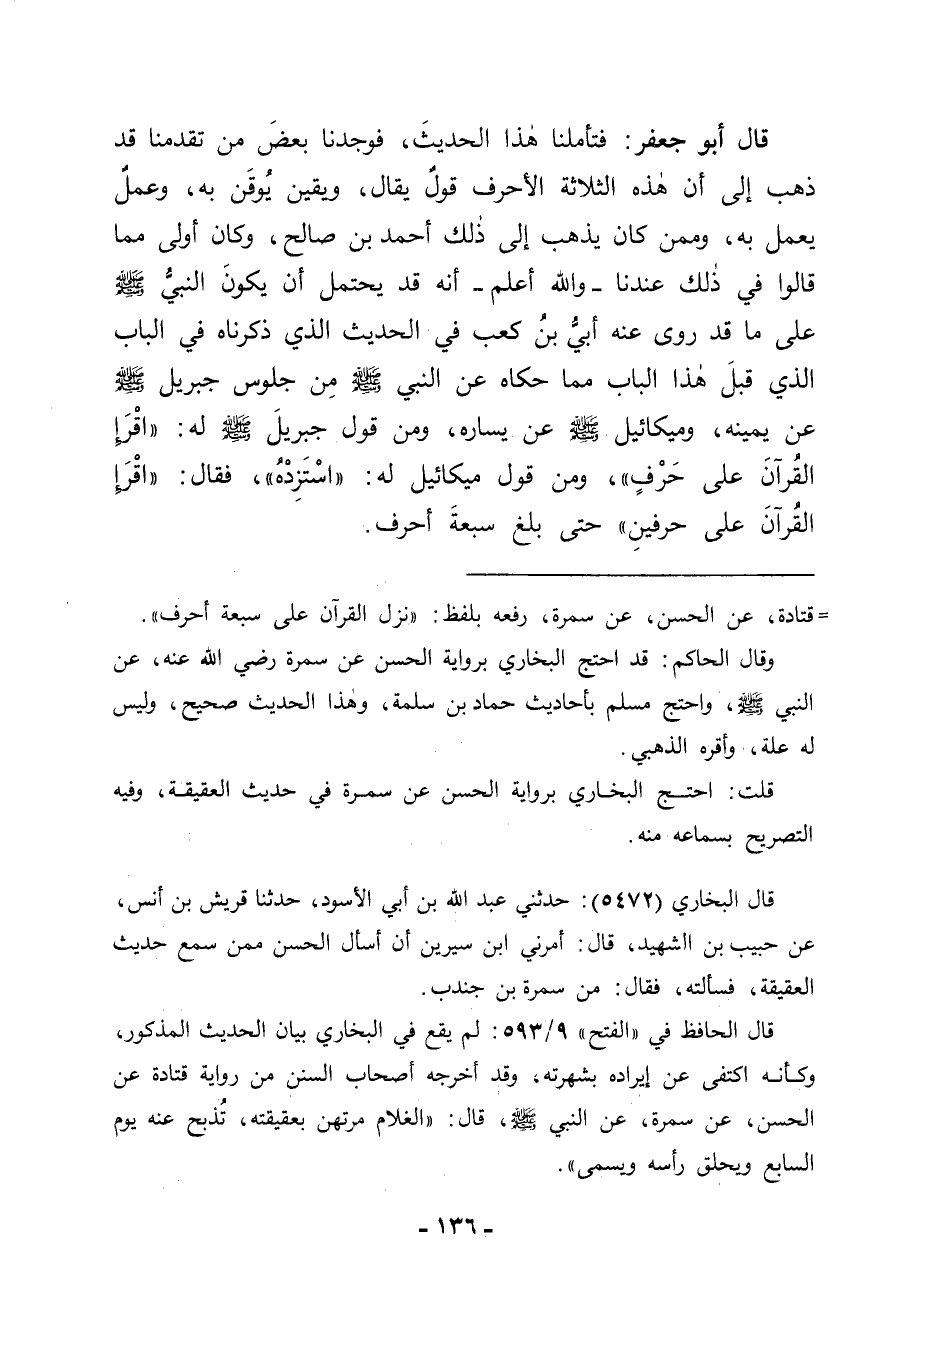 قال أبو جعفر: فتأملنا هٰذا الحديثَ، فوجدنا بعضَ من تقدمنا قد
ذهب إلى أن هٰذه الثلاثة الأحرف قولٌ يقال، ويقين يُوقَن به، وعملٌ
يعمل به، وممن كان يذهب إلى ذٰلك أحمد بن صالح، وكان أولى مما
قالوا في ذٰلك عندنا -والله أعلم- أنه قد يحتمل أن يكونَ النبيُّ ﷺ
على ما قد روى عنه أبيُّ بنُ كعب في الحديث الذي ذكرناه في الباب
الذي قبلَ هٰذا الباب مما حكاه عن النبي ﷺ مِن جلوس جبريل ﷺ
عن يمينه، وميكائيل ﷺ عن يساره، ومن قول جبريلَ ﷺ له: «اقْرَإِ
القُرآنَ على حَرْفٍ»، ومن قول ميكائيل له: «اسْتَزِدْهُ»، فقال: «اقْرَإِ
القُرآنَ على حرفينِ» حتى بلغ سبعةَ أحرف.
= قتادة، عن الحسن، عن سمرة، رفعه بلفظ: «نزل القرآن على سبعة أحرف».
وقال الحاكم: قد احتج البخاري برواية الحسن عن سمرة رضي الله عنه، عن
النبي ﷺ، واحتج مسلم بأحاديث حماد بن سلمة، وهٰذا الحديث صحيح، وليس
له علة، وأقره الذهبي.
قلت: احتج البخاري برواية الحسن عن سمرة في حديث العقيقة، وفيه
التصريح بسماعه منه.
قال البخاري (٥٤٧٢): حدثني عبد الله بن أبي الأسود، حدثنا قريش بن أنس،
عن حبيب بن الشهيد، قال: أمرني ابن سيرين أن أسأل الحسن ممن سمع حديث
العقيقة، فسألته، فقال: من سمرة بن جندب.
قال الحافظ في «الفتح» ٥٩٣/٩: لم يقع في البخاري بيان الحديث المذكور،
وكأنه اكتفى عن إيراده بشهرته، وقد أخرجه أصحاب السنن من رواية قتادة عن
الحسن، عن سمرة، عن النبي ﷺ، قال: «الغلام مرتهن بعقيقته، تُذبح عنه يوم
السابع ويحلق رأسه ويسمى».
- ١٣٦ -